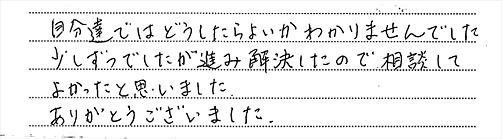 自分達ではどうしたらよいかわかりませんでした
少しずつでしたが進み解決したので相談して
よかったと思いました
ありがとうございました.